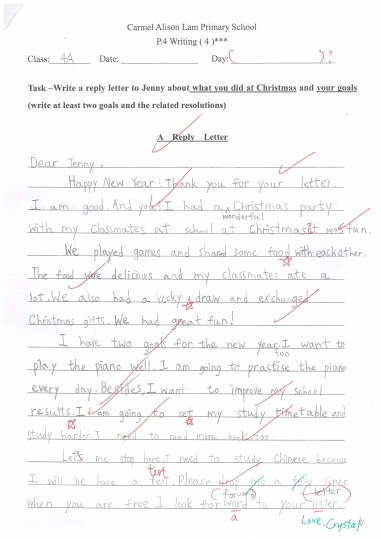 Carmel Alison Lam Primary School
P.4 Writing ( 4 )***
Class: 4A Date: Day: ( )?
Task –Write a reply letter to Jenny about what you did at Christmas and your goals
(write at least two goals and the related resolutions)
A Reply Letter
Dear Jenny,
Happy New Year! Thank you for your letter.
I am good. And you? I had a Christmas party
wonderful
with my classmates at school at Christmas. It was fun.
We played games and shared some food with each other.
The food were delicious and my classmates ate a
lot. We also had a lucky draw and exchanged
Christmas gifts. We had great fun!
I have two goals for the new year. I want to
too
play the piano well. I am going to practise the piano
every day. Besides, I want to improve my school
results. I am going to set my study timetable and
study harder. I need to read more books too.
Let's me stop here. I need to study Chinese because
test
I will be have a test. Please drop me a few lines
(forward) (letter)
when you are free. I look forword to your litter.
a
Love, Crystal